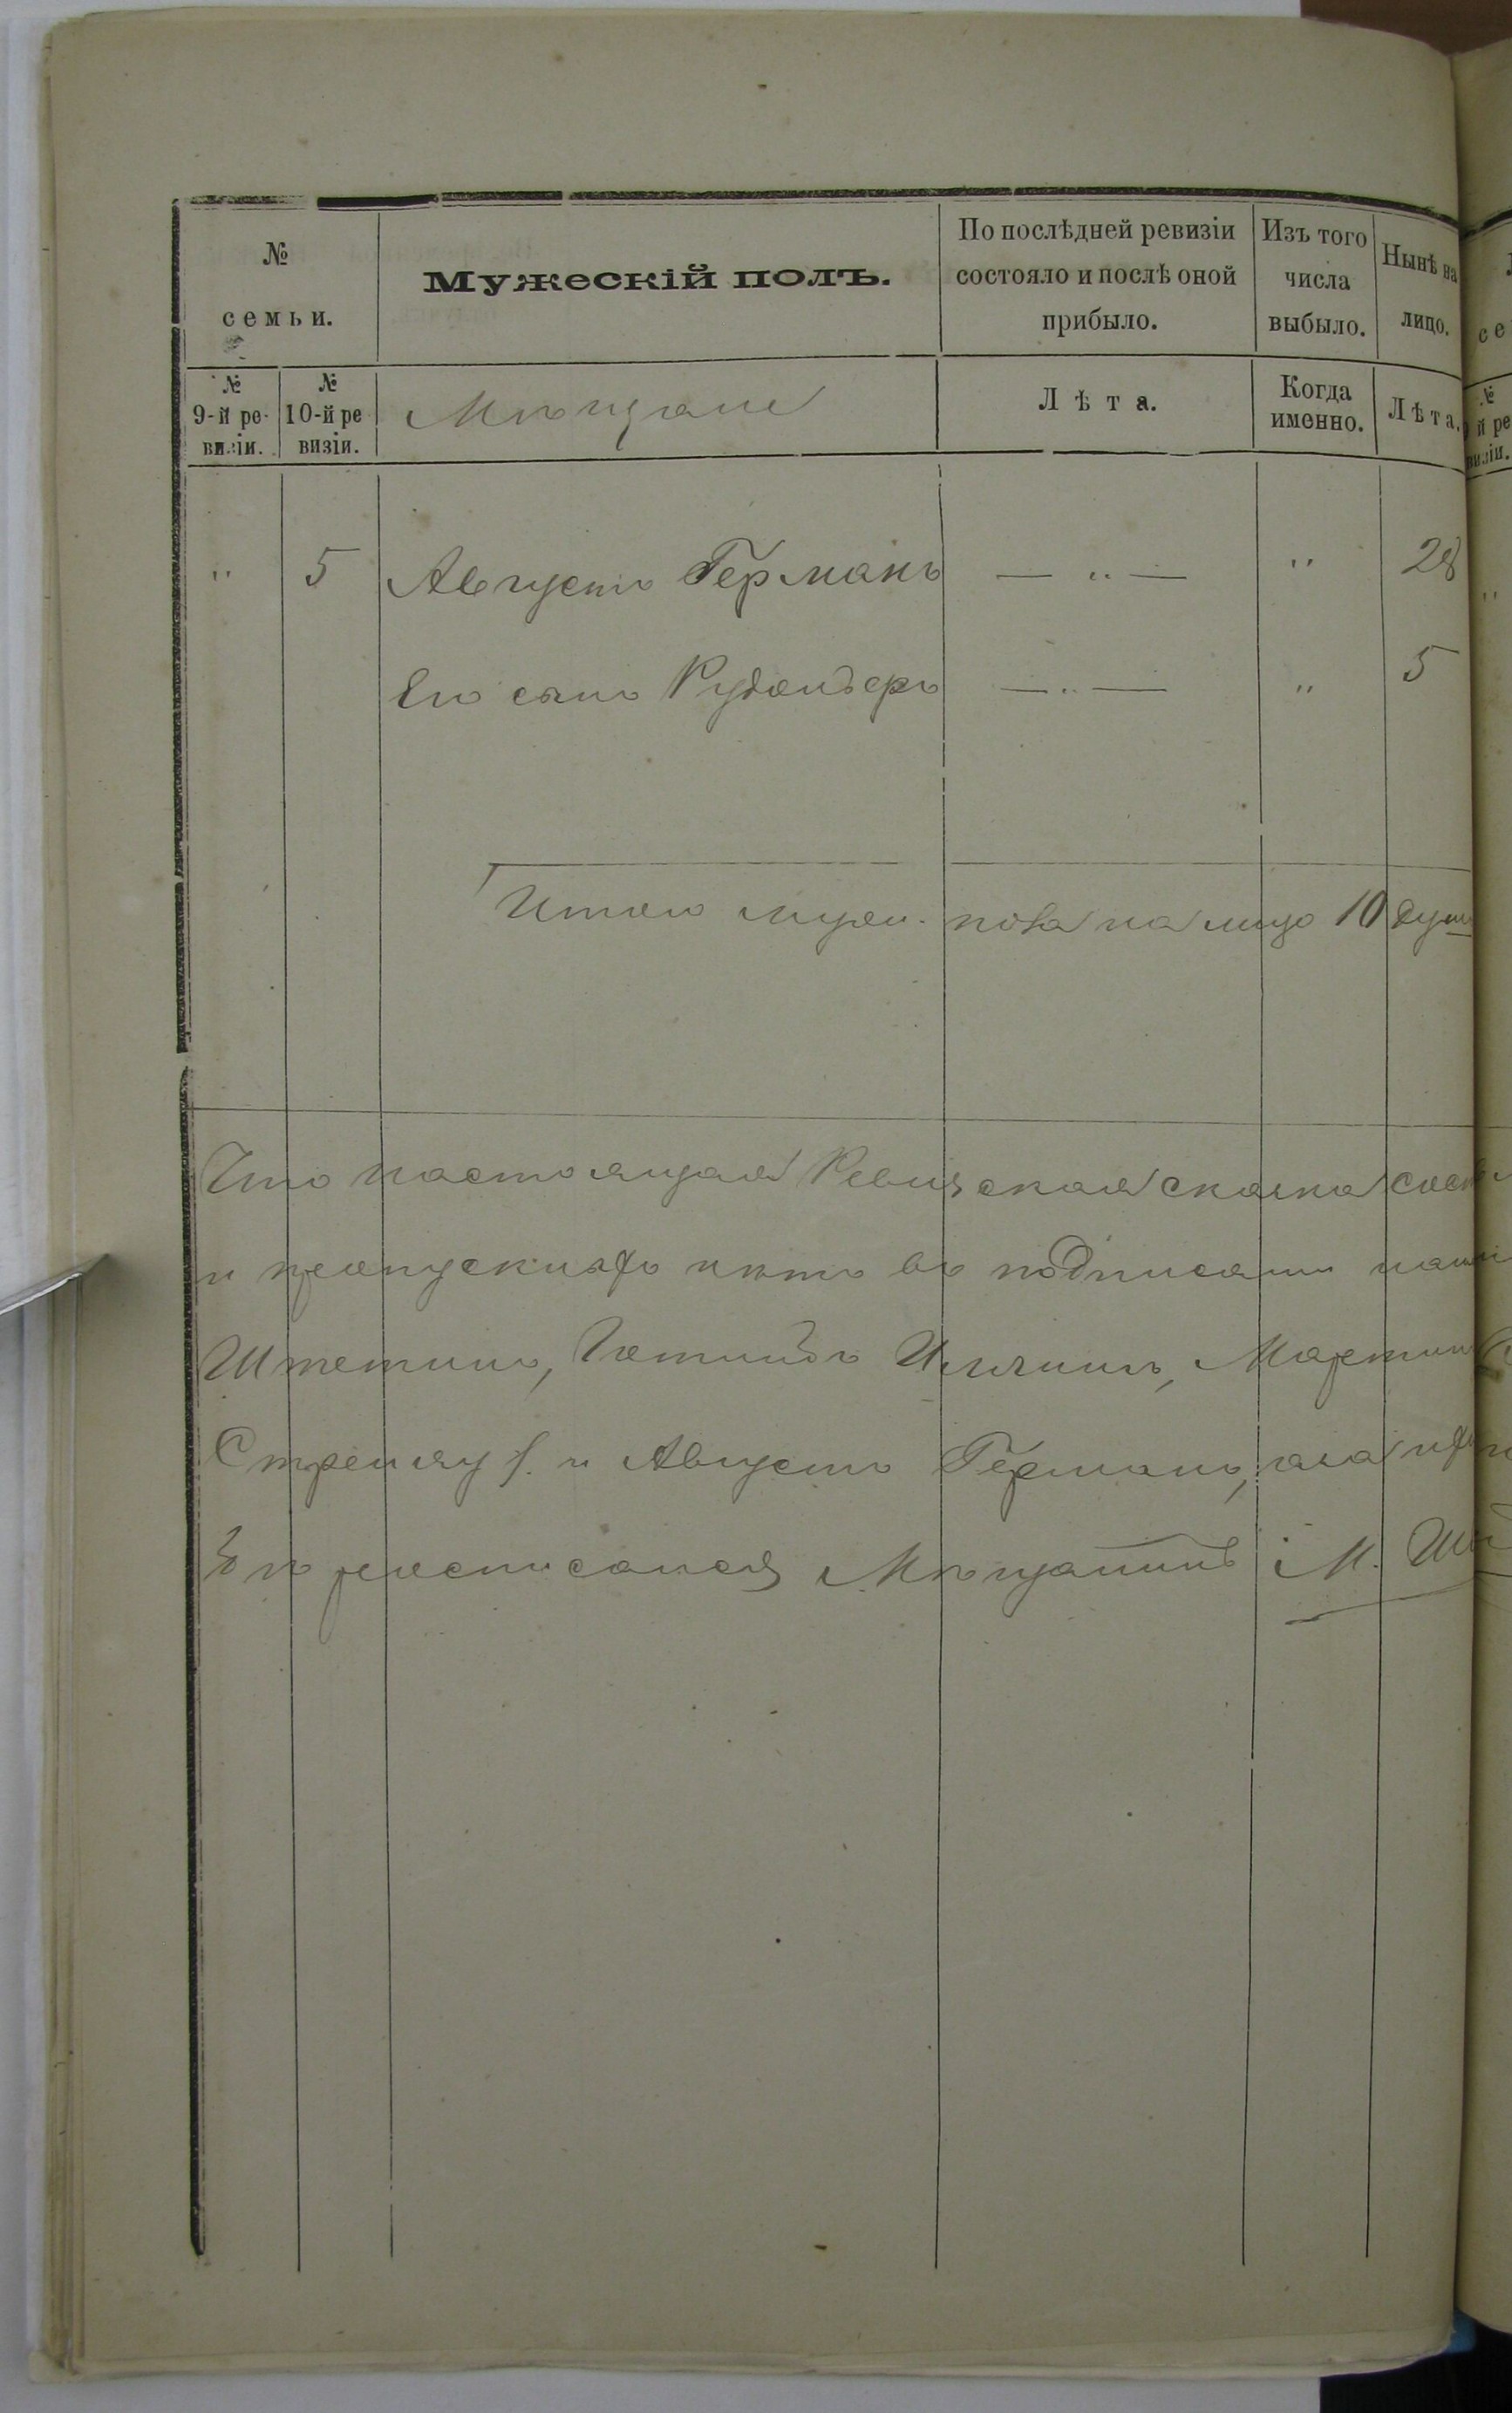 № семьи.
Мужескій полъ.
По послѣдней ревизіи состояло и послѣ оной прибыло.
Изъ того числа выбыло.
Нынѣ на лицо.
№ 9-й ревизіи.
№ 10-й ревизіи.
Мѣщане
Лѣта.
Когда именно.
Лѣта.
" 5 Августъ Германъ — " — " 28
Его сынъ — " — " 5
Итого муж. пола на лицо 10 душ
Что настоящая Ревизская сказка
и пропускныхъ нѣтъ въ
Штетинъ, Мартинъ
и Августъ Германъ, а за
росписался Мѣщанинъ М.